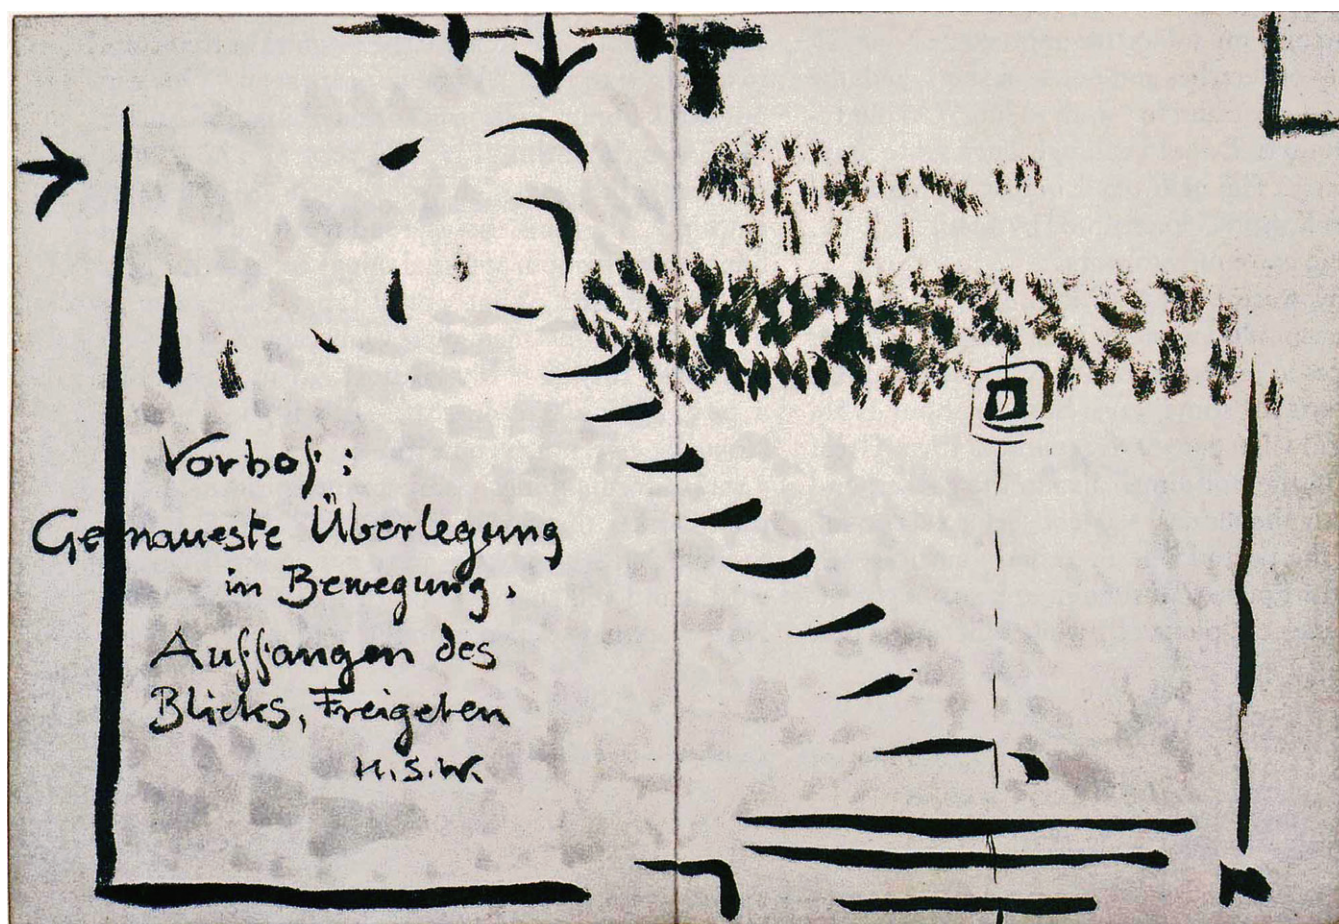 Vorhof:
Genaueste Überlegung
in Bewegung.
Auffangen des
Blicks, Freigeben
H.S.W.